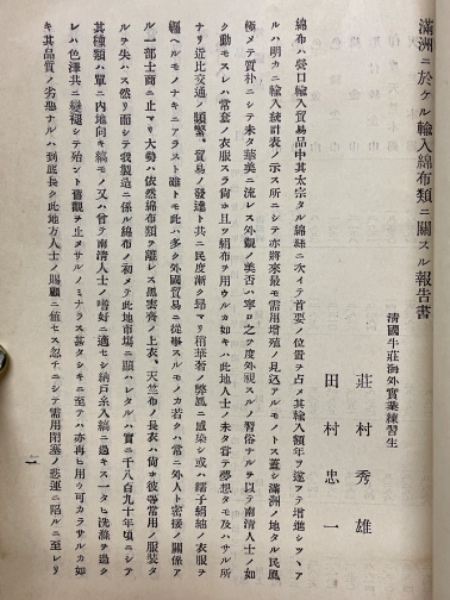 滿洲ニ於ケル輸入綿布類ニ關スル報告書
清國牛莊海外實業練習生
莊村秀雄
田村忠一
綿布ハ營口輸入貿易品中其太宗タル綿絲ニ次イテ首要ノ位置ヲ占メ其輸入額年ヲ逐フテ增進シツヽア
ルハ明カニ輸入統計表ノ示ス所ニシテ亦將來最モ需用增殖ノ見込アルモノトス蓋シ滿洲ノ地タル民風
極メテ質朴ニシテ未タ華美ニ流レス外觀ノ美否ハ寧ロ之ヲ度外視スルノ習俗ナルヲ以テ南清人士ノ如
ク動モスレハ常套ノ衣服スラ尙ホ且ツ絹布ヲ用ウルカ如キハ此地人士ノ未タ嘗テ夢想タモ及ハサル所
ナリ近比交通ノ頻繁、貿易ノ發達ト共ニ民度漸ク昻マリ稍華奢ノ弊風ニ感染シ或ハ繻子絹紬ノ衣服ヲ
纒ヘルモノナキニアラスト雖トモ此ハ多ク外國貿易ニ從事スルモノカ若クハ常ニ外人ト密接ノ關係ア
ル一部士商ニ止マリ大勢ハ依然綿布類ヲ離レス黑雲齊ノ上衣、天竺布ノ長衣ハ尙ホ彼等常用ノ服裝タ
ルヲ失ハス然リ而シテ我製造ニ係ル綿布ノ初メテ此地市場ニ顯ハレタルハ實ニ千八百九十年頃ニシテ
其種類ハ單ニ內地向キ縞モノ又ハ曾テ南清人士ノ嗜好ニ適セシ納戶糸入縞ニ過キス一タヒ洗滌ヲ過ク
レハ色澤共ニ變褪シテ殆ント舊觀ヲ止メサルノミナラス甚タシキニ至テハ亦再ヒ用ウ可カラサルカ如
キ其品質ノ劣惡ナルハ到底長ク此地方人士ノ賜顧ニ値セス忽チニシテ需用閉塞ノ悲運ニ陷ルニ至レリ
一